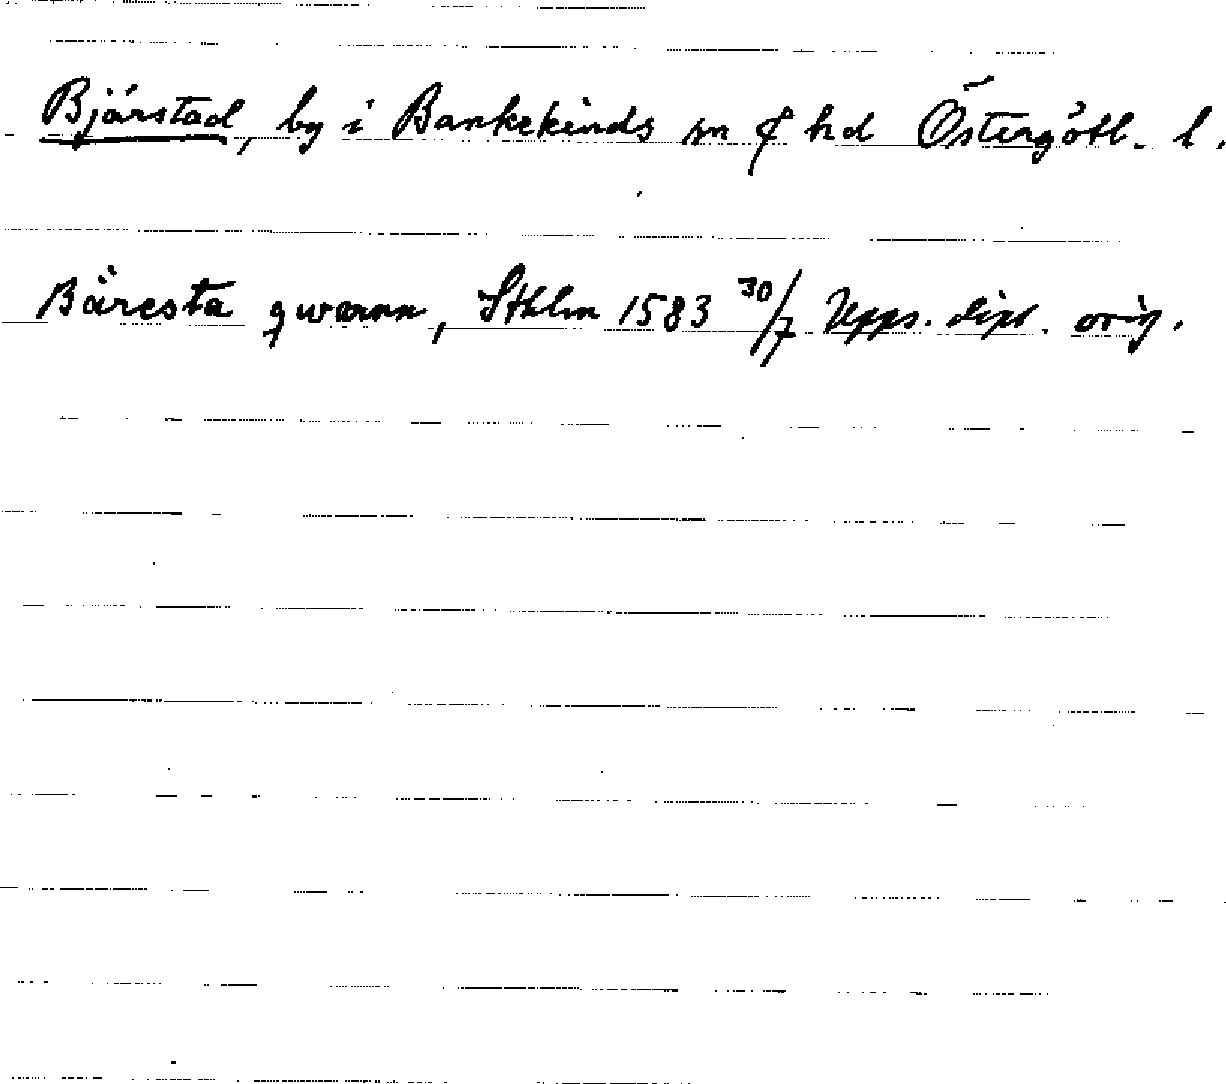 Bjärstad, by i Bankekinds sn & hd Östergötl. l.
Bäresta qwarnn, Sthlm 1583 30/7 Upps. dipl. orig.